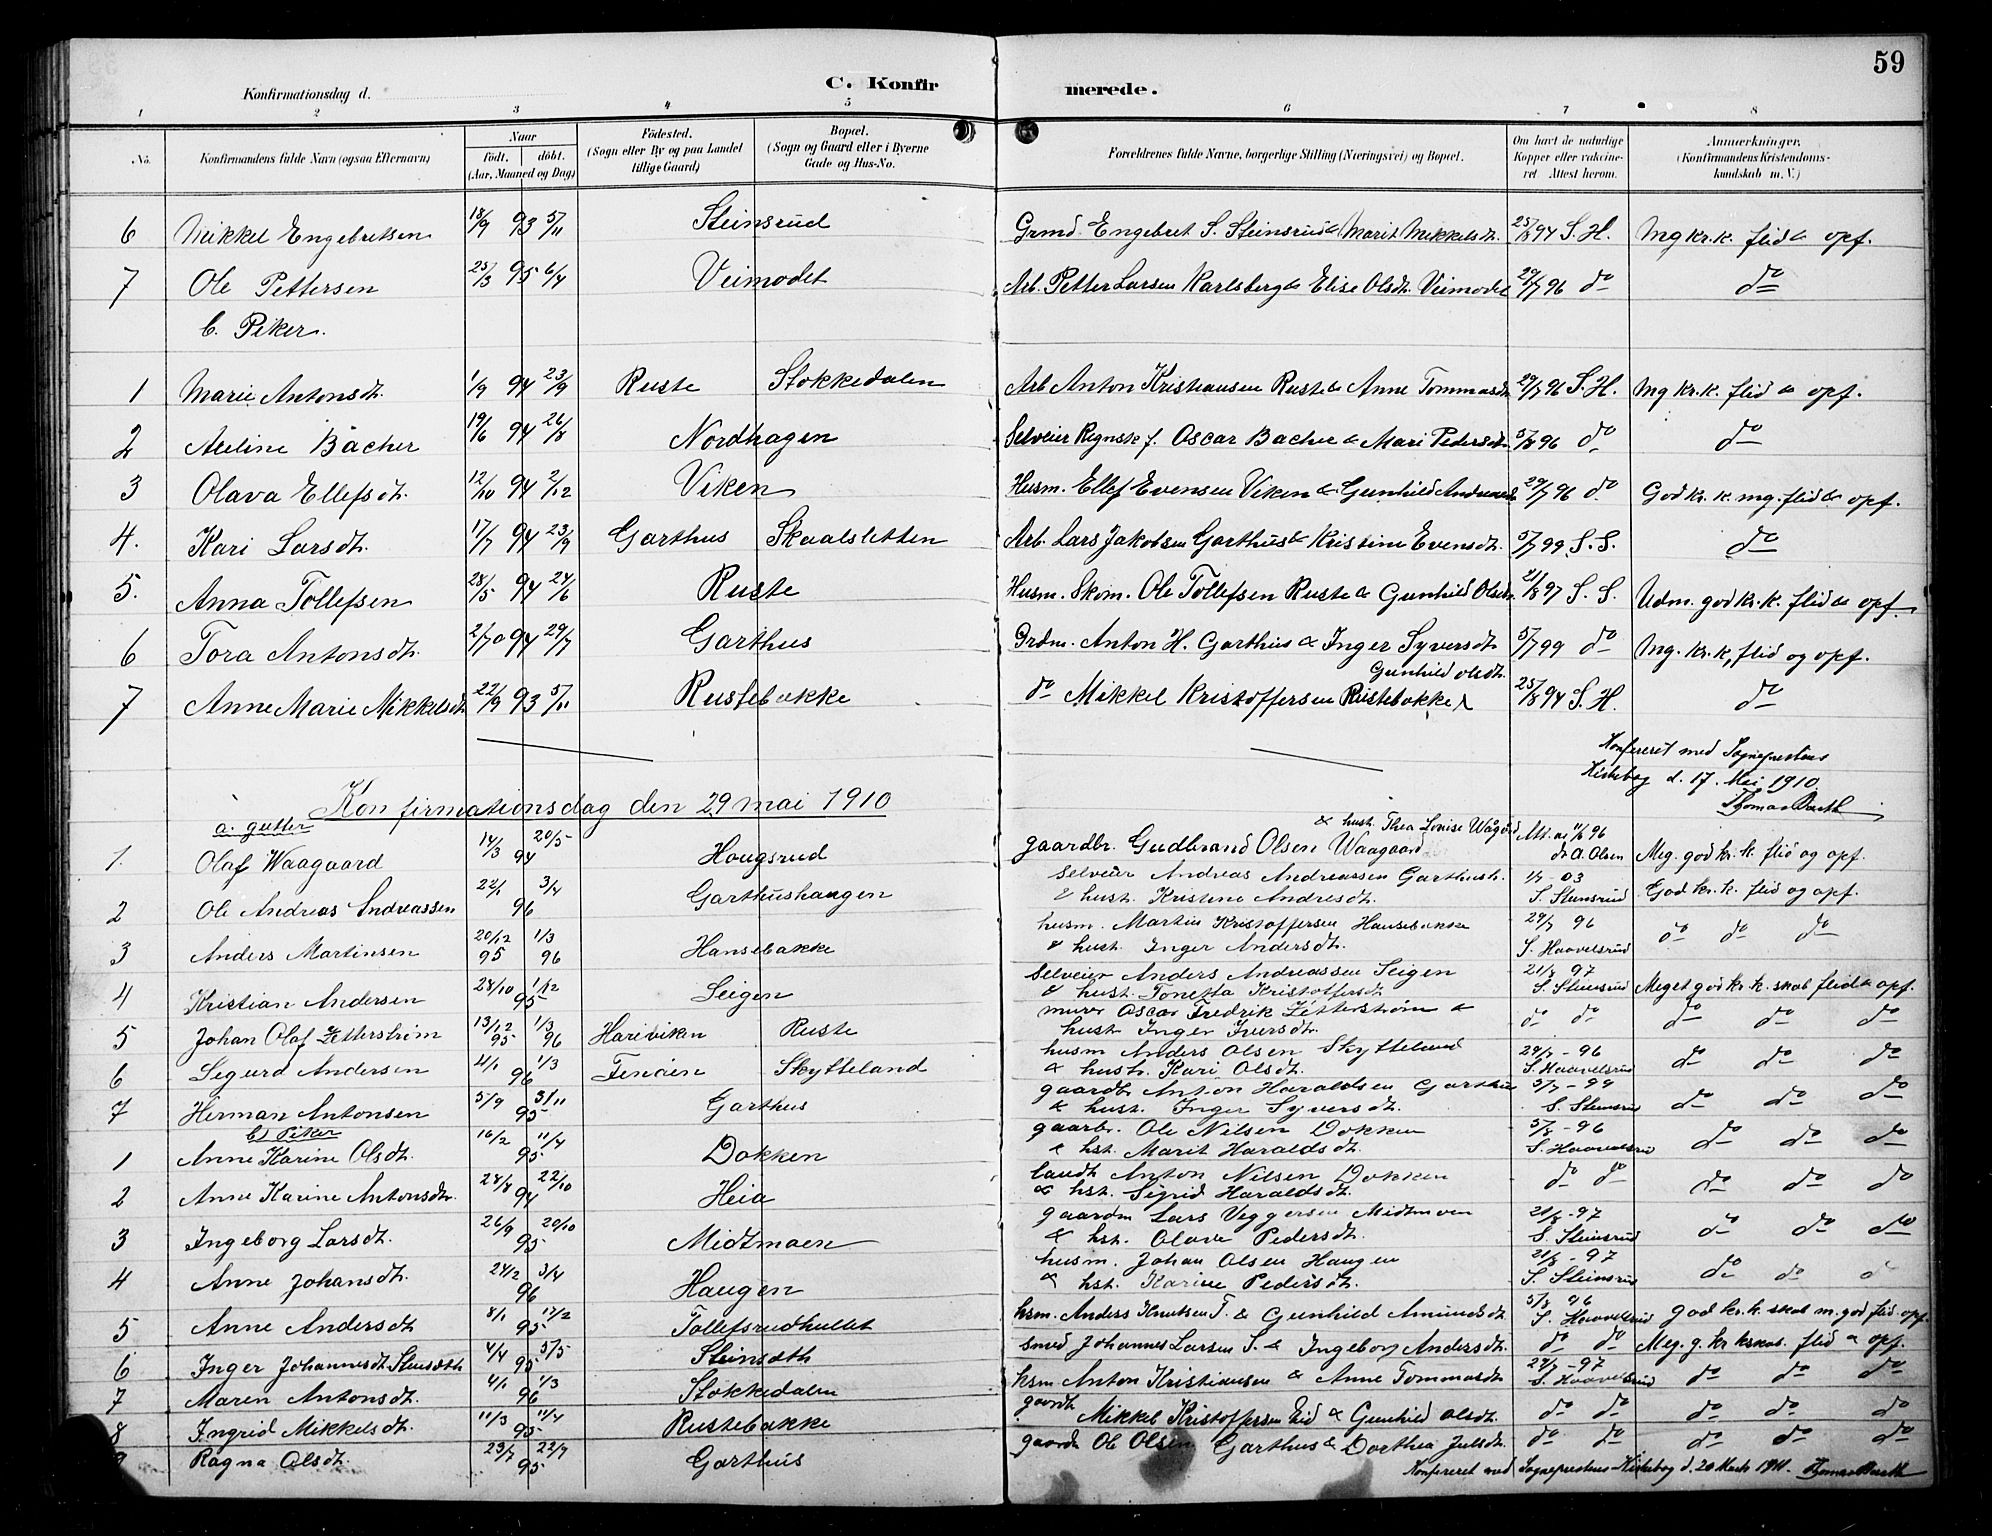 59
Konfirmationsdag d.
C. Konfirmerede.
1 2 3 4 5 6 7 8
No. Konfirmandens fulde Navn (ogsaa Efternavn) Naar födt. döbt. (Aar, Maaned og Dag) Födested. (Sogn eller By og paa Landet tillige Gaard) Bopæl. (Sogn og Gaard eller i Byerne Gade og Hus-No. Forældrenes fulde Navne, borgerlige Stilling (Næringsvei) og Bopæl. Om havt de naturlige Kopper eller vaccineret. Attest herom. Anmærkninger. (Konfirmandens Kristendomskundskab m. V.)
6 Mikkel Engebretsen 18/9 93 5/11 Steinsrud Grmd. Engebret S. Steinsrud & Marit Mikkelsdt. 25/8 94 S. H. Mg kr.k. flid & opf.
7 Ole Pettersen 25/3 95 6/4 Veimodet Arb. Petter Larsen Karlsberg & Elise Olsdt. Veimodet 29/7 96 do do
b. Piker.
1 Marie Antonsdt. 1/9 94 23/9 Ruste Stokkedalen Arb Anton Kristiansen Ruste & Anne Tommasdt 29/7 96 S. H. Mg kr.k. flid & opf.
2 Adeline Bacher 19/6 94 26/8 Nordhagen Selveier Regnskf. Oscar Bacher & Mari Pedersdt. 5/8 96 do do
3 Olava Ellefsdt. 12/10 94 2/12 Viken Husm. Ellef Evensen Viken & Gunhild Andersdt 29/7 96 do God kr. k. mg. flid & opf.
4. Kari Larsdt. 17/7 94 23/9 Garthus Skaalsletten Arb. Lars Jakobsen Garthus & Kristine Evensdt. 5/7 99 S. S. do
5. Anna Tollefsen 28/5 94 24/6 Ruste Husm. Skom. Ole Tollefsen Ruste & Gunhild Olsdt. 21/8 97 S. S. Udm. god kr. k. flid & opf.
6 Tora Antonsdt. 2/7 94 29/7 Garthus Grdm. Anton H. Garthus & Inger Syversdt 5/7 99 do Mg. kr. k, flid og opf.
7 Anne Marie Mikkelsdt 22/9 93 5/11 Rustebakke do Mikkel Kristoffersen Rustebakke & Gunhild Olsdt. 25/8 94 S. H. do
Konfereret med Sogneprestens
Kirkebog d. 17. Mai 1910.
Thomas Barth
Konfirmationsdag den 29 mai 1910
a. gutter
1. Olaf Waagaard 14/3 94 20/5 Hougsrud gaardbr. Gudbrand Olsen Waagaard & hust. Thea Lovise Wågård Att. av 11/6 96 dr A. Olsen Meg. god kr. k. flid og opf.
2 Ole Andreas Andreassen 22/1 96 3/4 Garthushaugen Selveier Andreas Andreassen Garthush. & hust. Kristine Andresdt. 1/7 - 03 S. Stensrud God kr. k. flid og opf.
3 Anders Martinsen 20/12 95 1/3 96 Hansebakke husm. Martin Kristoffersen Hansebakke & hust. Inger Andersdt. 29/7 96 S. Haavelsrud do do do
4 Kristian Andersen 28/10 95 1/12 Seigen Selveier Anders Andreassen Seigen & hust. Tonetta Kristoffersdt 21/8 97 S. Stensrud Meget god kr. k. skab flid & opf.
5 Johan Olaf Zetterström 13/12 95 1/3 96 Hareviken Ruste murer Oscar Fredrik Zetterström & hust. Inger Iversdt. do do do do do
6 Sigurd Andersen 4/1 96 1/3 Skytteland husm Anders Olsen Skytteland & hustr. Kari Olsdt. 29/7 - 96 S. Haavelsrud do do do
7 Herman Antonsen 5/9 95 3/11 Garthus gaardbr Anton Haraldsen Garthus & hust. Inger Syversdt. 5/7 - 99 S. Stensrud do do do
b) Piker
1 Anne Karine Olsdt. 16/2 95 11/4 Dokken gaarbr. Ole Nilsen Dokken & hst. Marit Haraldsdt. 5/8 - 96 S. Haavelsrud do do do
2 Anne Karine Antonsdt. 28/8 94 22/10 Heia Anton Nilsen Dokken & hst. Sigrid Haraldsdt. do do do do do
3 Ingeborg Larsdt. 26/9 95 20/10 Midtmoen gaardm Lars Veggersen Midtmoen & hst. Olava Pedersdt. 21/8 - 97 S. Stensrud do do do
4 Anne Johansdt. 24/2 96 3/4 Haugen husm. Johan Olsen Haugen & hst. Karine Pedersdt. 21/8 - 97 S. Steinsrud do do d
5 Anne Andersdt 8/1 95 17/2 Tollefsrudhullet hsm. Anders Knutsen T. & Gunhild Amundsdt 5/8 96 S. Haavelsrud god kr. k. skab m. god flid. opf.
6 Inger Johannesdt. Stensdth 4/4 95 5/5 Steinsdth smed Johannes Larsen S. & Ingeborg Andersdt. do do Meg. g. kr kskab. flid & opf.
7 Maren Antonsdt. 4/1 96 1/3 Stokkedalen hsm Anton Kristiansen & Anne Tommasdt 29/7 - 97 S. Haavelsrud do do do
8 Ingrid Mikkelsdt. 11/3 95 11/4 Rustebakke Mikkel Kristoffersen Eid & Gunhild Olsdt. do do do do do
9 Ragna Olsdt. 23/7 95 22/9 Garthus Ole Olsen Garthus & Dorthea Julsdt. do do do do do
Konfereret med Sogneprestens Kirkebog d. 20 Marts 1911. Thomas Barth